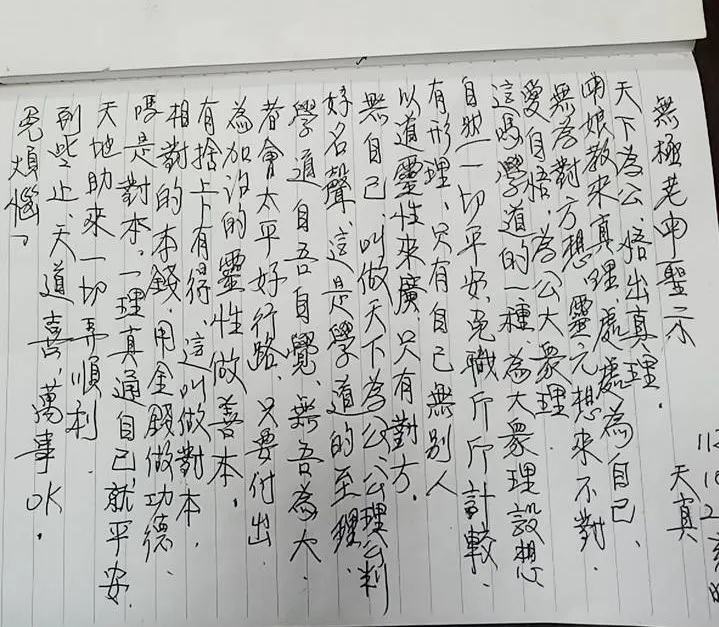 無極老申聖示
天下為公、悟出真理、
申娘教來真理、處處為自己、
無為對方想、靈元想來不對
愛自悟、為公大眾理
這嗎學道的一種、為大眾理設想
自然一切平安、免職斤斤計較、
有形理、只有自己無別人
以道靈性來廣、只有對方、
無自己、叫做天下為公、公理公判
好名聲、這是學道的至理、
學道自吾自覺、無吾為大、
者會太平好行路、只要付出
為加汝的靈性做善本、
有捨上有得、這叫做對本、
相對的本錢、用金錢做功德、
嗎是對本、一理真通自己就平安、
天地助來一切弄順利
到些止、天道喜、萬事OK、
免煩惱、
天真